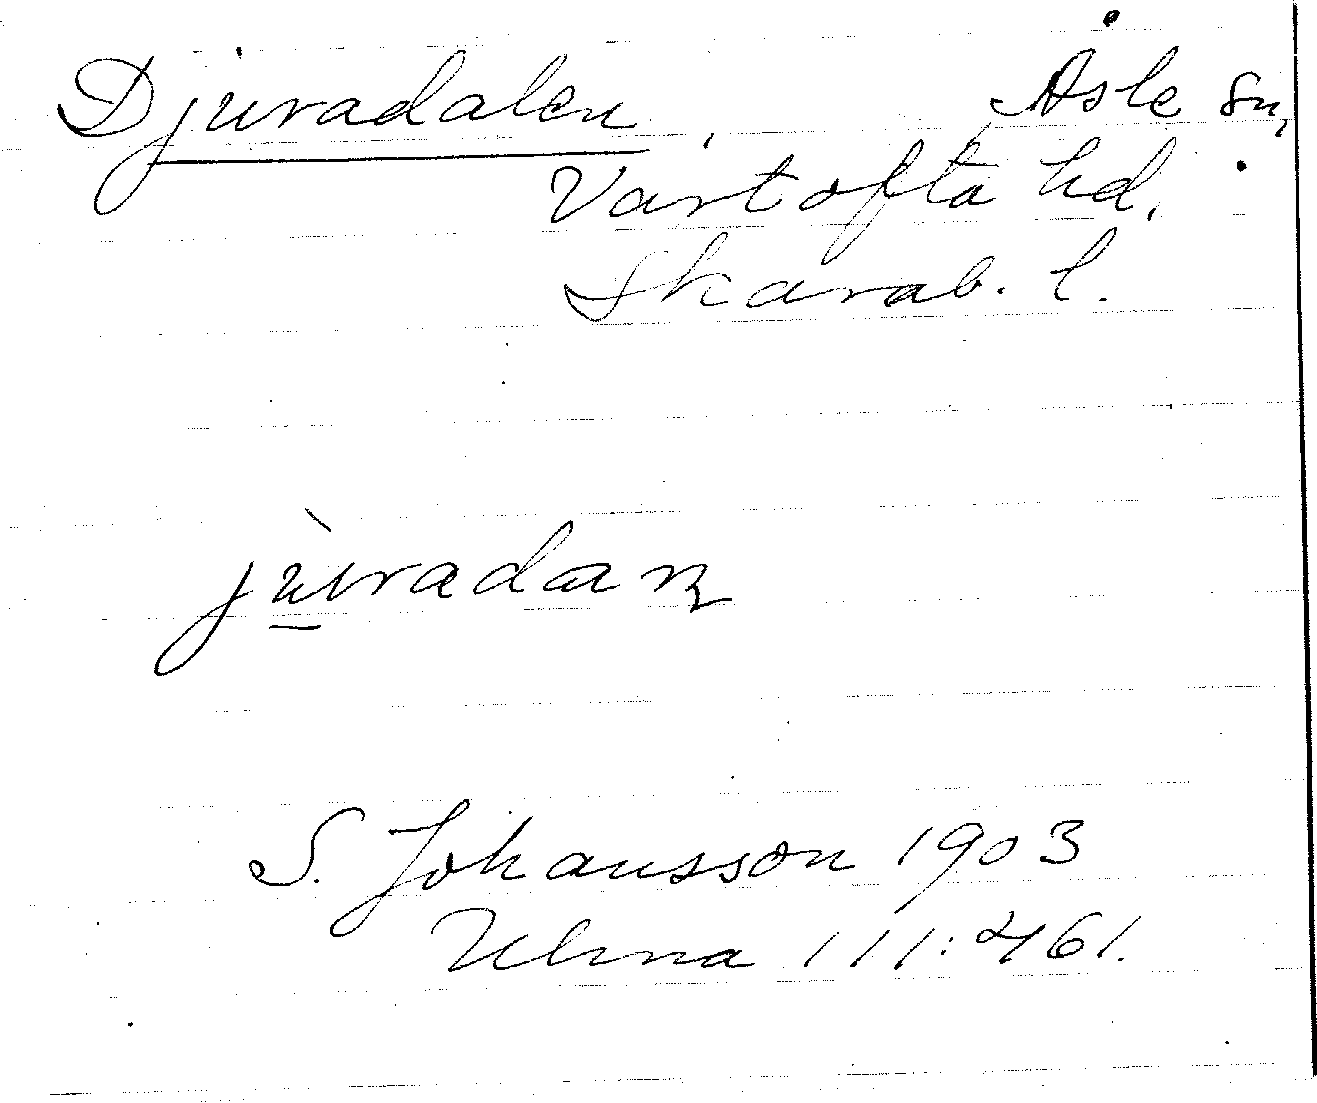 Djuradalen, Åsle sn,
Vartofta hd.
Skarab. l.
jùradaɲ
S. Johansson 1903
111:461.